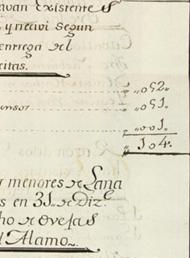 avan Existente s
s y recivi segun
entrega de l
citas.
" 052.
ensor " 051.
" 001.
" 104.
s menores de Lana
s en 31. de Diz.e
cho de ovejas
l Alamo.